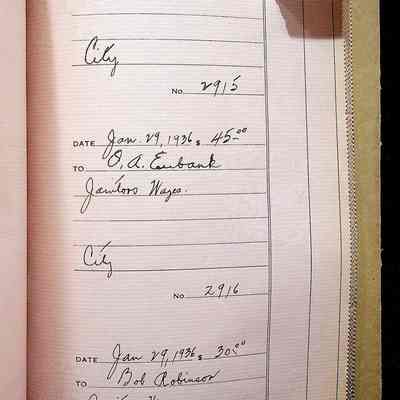 City
No. 2915
DATE Jan. 29, 1936 $ 45.00
TO O. A. Eubank
Janitors Wages.
City
No. 2916
DATE Jan 29, 1936 $ 30.00
TO Bob Robinson